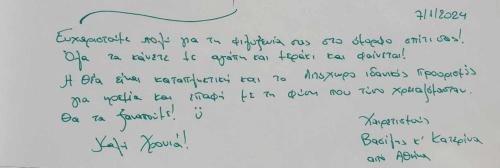 7/1/2024
Ευχαριστούμε πολύ για τη φιλοξενία σας στο όμορφο σπίτι σας!
Όλα τα κάνετε με αγάπη και μεράκι και φαίνεται!
Η θέα είναι καταπληκτική και το Λιτόχωρο ιδανικός προορισμός
για ηρεμία και επαφή με τη φύση που τόσο χρειαζόμασταν.
Θα τα ξαναπούμε! ü
Καλή Χρονιά!
Χαιρετισμούς
Βασίλης κ' Κατερίνα
από Αθήνα